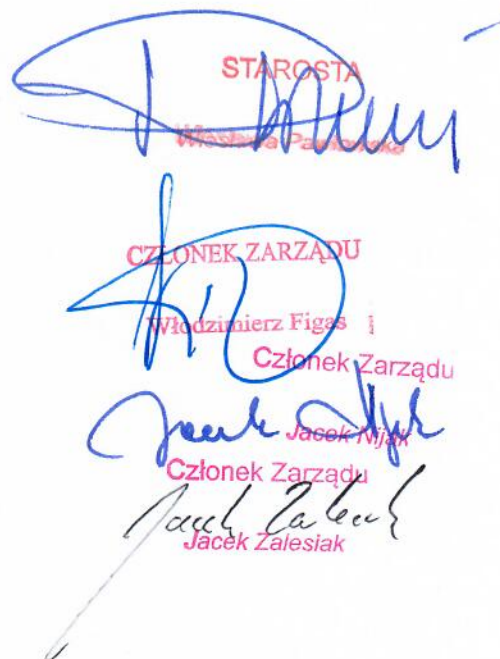 STAROSTA
CZŁONEK ZARZĄDU
Włodzimierz Figas
Członek Zarządu
Jacek Nijak
Członek Zarządu
Jacek Zalesiak